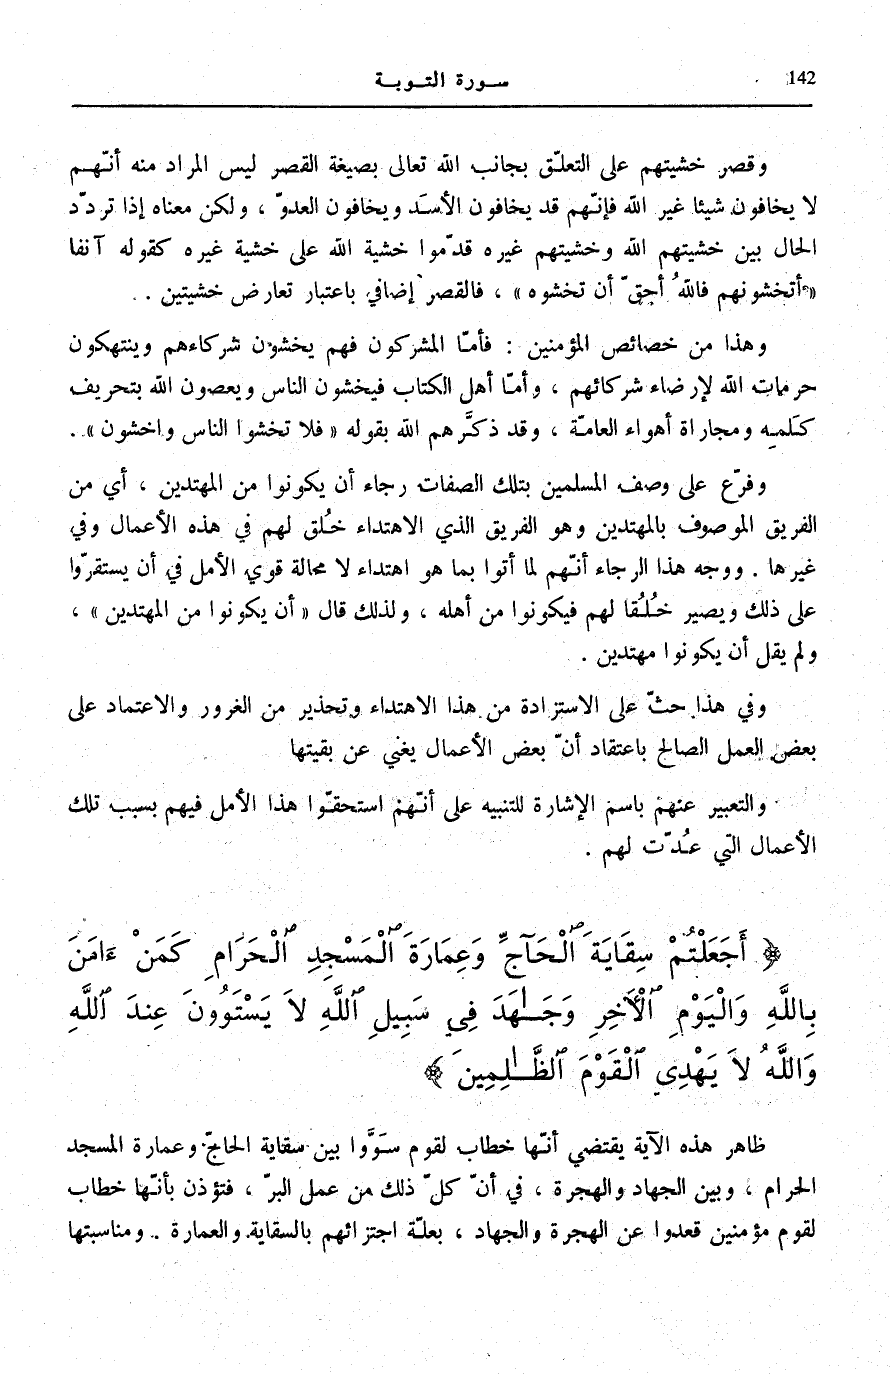 142 سـورة التـوبـة
وقصر خشيتهم على التعلّق بجانب الله تعالى بصيغة القصر ليس المراد منه أنـّهـم
لا يخافون شيئا غير الله فإنـّهم قد يخافون الأسـَد ويخافون العدوّ ، ولكن معناه إذا تردّد
الحال بين خشيتهم الله وخشيتهم غيره قدّموا خشية الله على خشية غيره كقوله آنفا
«أتخشونهم فاللهُ أحقّ أن تخشوه» ، فالقصر إضافي باعتبار تعارض خشيتين .
وهذا من خصائص المؤمنين : فأمـّا المشركون فهم يخشون شركاءهم وينتهكون
حرمات الله لإرضاء شركائهم ، وأمـّا أهل الكتاب فيخشون الناس ويعصون الله بتحريف
كـَلمـِه ومجاراة أهواء العامـّة ، وقد ذكـَّرهم الله بقوله «فلا تخشوا الناس واخشون» .
وفرّع على وصف المسلمين بتلك الصفات رجاء أن يكونوا من المهتدين ، أي من
الفريق الموصوف بالمهتدين وهو الفريق الذي الاهتداء خـُلق لهم في هذه الأعمال وفي
غيرها . ووجه هذا الرجاء أنـّهم لما أتوا بما هو اهتداء لا محالة قوي الأمل في أن يستقرّوا
على ذلك ويصير خـُلـُقا لهم فيكونوا من أهله ، ولذلك قال «أن يكونوا من المهتدين» ،
ولم يقل أن يكونوا مهتدين .
وفي هذا حثّ على الاستزادة من هذا الاهتداء وتحذير من الغرور والاعتماد على
بعض العمل الصالح باعتقاد أنّ بعض الأعمال يغني عن بقيتها
والتعبير عنهم باسم الإشارة للتنبيه على أنـّهم استحقـّوا هذا الأمل فيهم بسبب تلك
الأعمال التي عـُدّت لهم .
﴿ أَجَعَلْتُمْ سِقَايَةَ ٱلْحَآجِّ وَعِمَارَةَ ٱلْمَسْجِدِ ٱلْحَرَامِ كَمَنْ ءَامَنَ
بِاللَّهِ وَالْيَوْمِ ٱلْأَخِرِ وَجَـٰهَدَ فِي سَبِيلِ ٱللَّهِ لاَ يَسْتَوُونَ عِندَ ٱللَّهِ
وَاللَّهُ لاَ يَهْدِي ٱلْقَوْمَ ٱلظَّـٰلِمِينَ ﴾
ظاهر هذه الآية يقتضي أنـّها خطاب لقوم سـَوَّوا بين سقاية الحاجّ وعمارة المسجد
الحرام ، وبين الجهاد والهجرة ، في أنّ كلّ ذلك من عمل البرّ ، فتؤذن بأنـّها خطاب
لقوم مؤمنين قعدوا عن الهجرة والجهاد ، بعلـّة اجتزائهم بالسقاية والعمارة . ومناسبتها